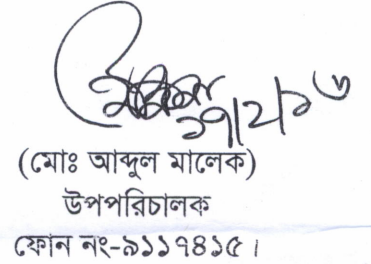 ১৭/২/১৬
(মোঃ আব্দুল মালেক)
উপপরিচালক
ফোন নং-৯১১৭৪১৫।